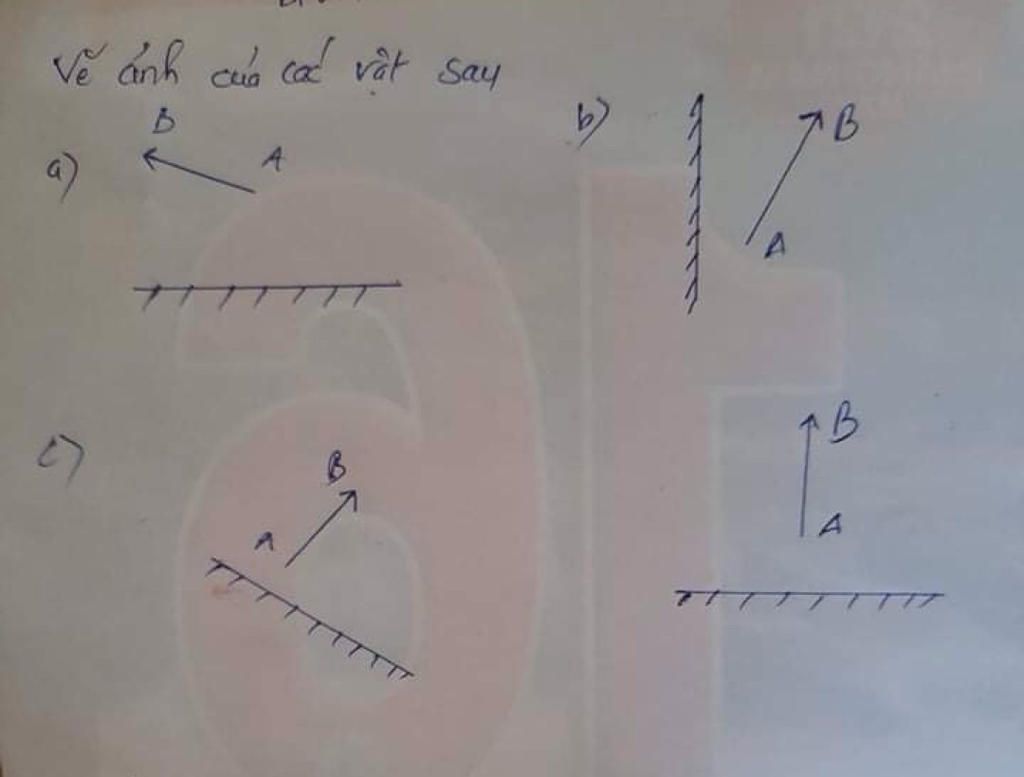 Vẽ ảnh của các vật say
a) B A
b) B
A
c) B
A
B
A